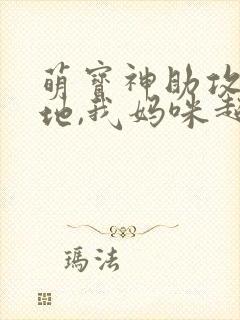 萌寳神助攻
地,我妈咪超
瑪法